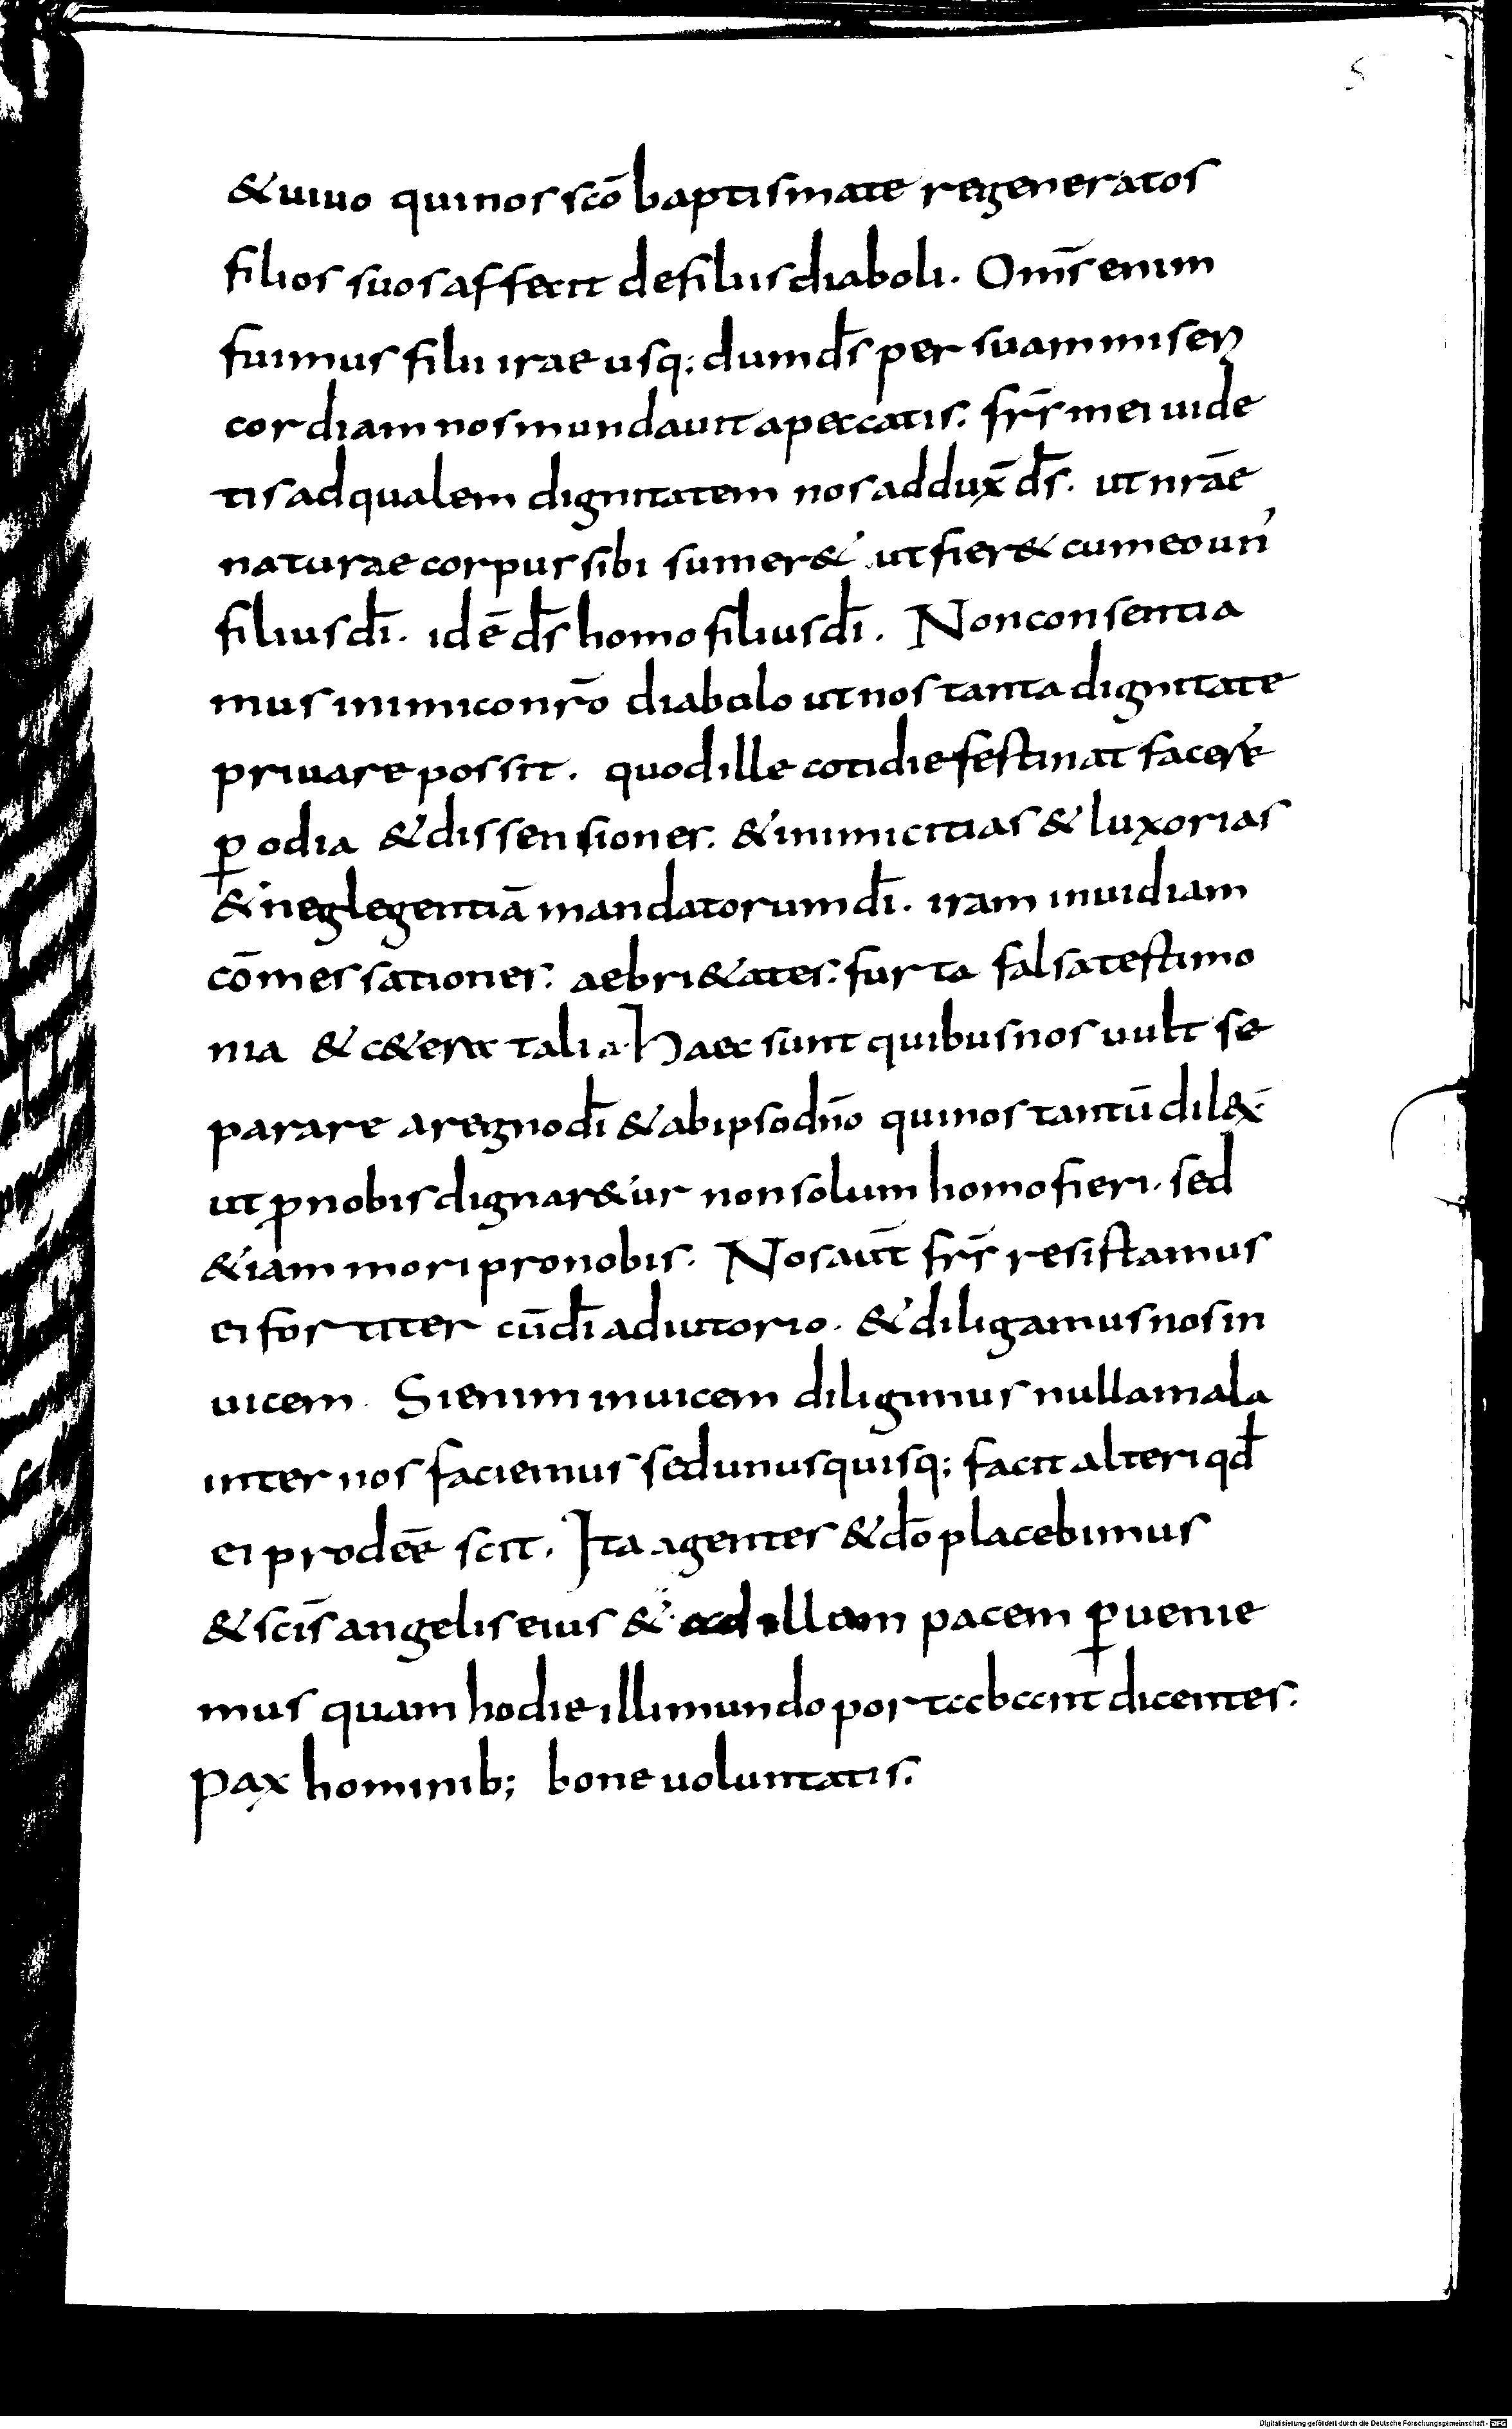 5
& uiuo qui nos sc̄o baptismate regeneratos
filios suos affecit de filiis diaboli. Om̄s enim
fuimus filii irae usq; dum d̄s per suam miseri
cordiam nos mundauit a peccatis. fr̄s mei uide
tis ad qualem dignitatem nos addux̄ d̄s. ut nr̄ae
naturae corpus sibi sumer& ut fier& cum eo un'
filius dī. idē d̄s homo filius dī. Non consentia
mus inimico nr̄o diabolo ut nos tanta dignitate
priuare possit. quod ille cotidie festinat facere
ꝑ odia & dissensiones. & inimicitias & luxorias
& neglegentiā mandatorum dī. iram inuidiam
cōmessationes. aebri&ates. furta falsa testimo
nia & c&era talia. Haec sunt quibus nos uult se
parare a regno dī & ab ipso dn̄o qui nos tantū dil&̄
ut ꝓ nobis dignar&ur non solum homo fieri. sed
&iam mori pro nobis. Nos aut̄ fr̄s resistamus
ei fortiter cū dī adiutorio. & diligamus nos in
uicem. Si enim inuicem diligimus nulla mala
inter nos faciemus sed unusquisq; facit alteri qd̄
ei prodeē scit. Ita agentes & dō placebimus
& sc̄is angelis eius & ad illam pacem ꝑuenie
mus quam hodie illi mundo portabant dicentes.
pax hominib; bone uoluntatis.
Digitalisierung gefördert durch die Deutsche Forschungsgemeinschaft - DFG